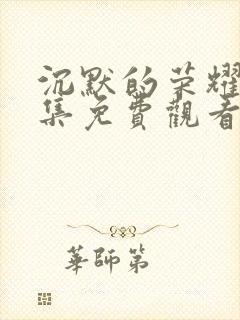 沉默的荣耀
集免費觀看
華師第